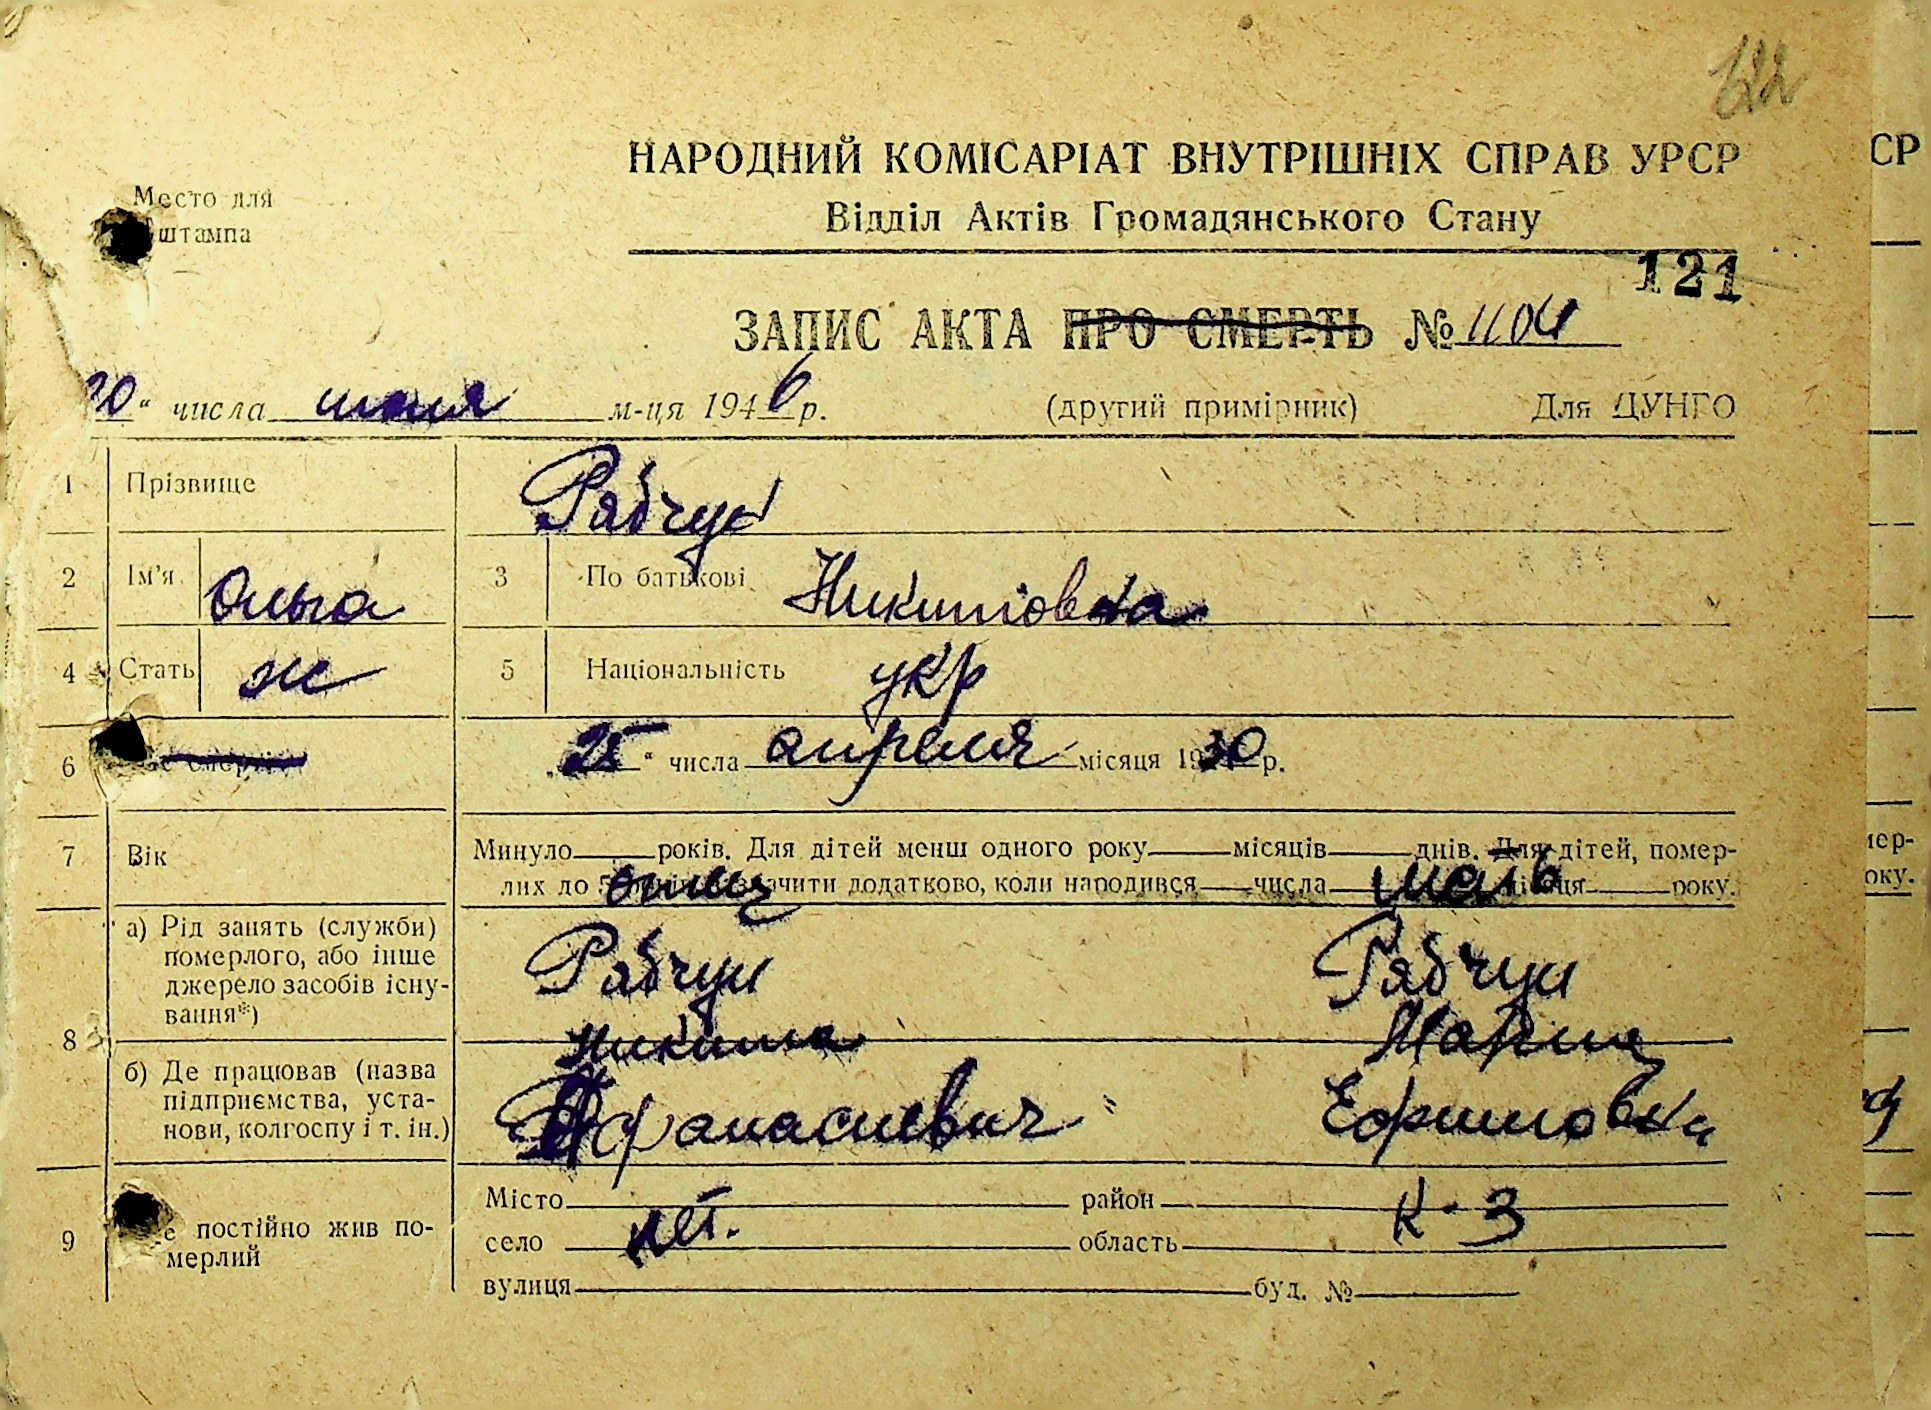 122
НАРОДНИЙ КОМІСАРІАТ ВНУТРІШНІХ СПРАВ УРСР
СР
Место для
штампа
Відділ Актів Громадянського Стану
121
ЗАПИС АКТА ПРО СМЕРТЬ № 1104
20 " числа июня м-ця 1946 р. (другий примірник) Для ЦУНГО
1 Прізвище Рябчун
2 Ім'я Ольга 3 По батькові Никитовна
4 Стать ж 5 Національність укр
6 смерті „25" числа апреля місяця 1930 р.
7 Вік Минуло років. Для дітей менш одного року місяців днів. Для дітей, помер-
лих до 5 значити додатково, коли народився числа місяця року.
мер-
оку.
отец мать
8 а) Рід занять (служби) померлого, або інше джерело засобів існу-вання*)
Рябчун Рябчун
Никита Мария
б) Де працював (назва підприємства, уста-нови, колгоспу і т. ін.)
Афанасиевич Ефимовна
9 постійно жив по-мерлий
Місто район К-З
село обл­асть
вулиця буд. №